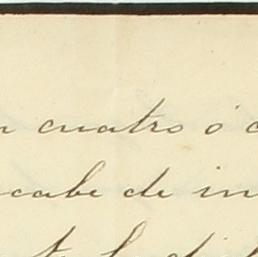 n cuatro ó c
cabe de in